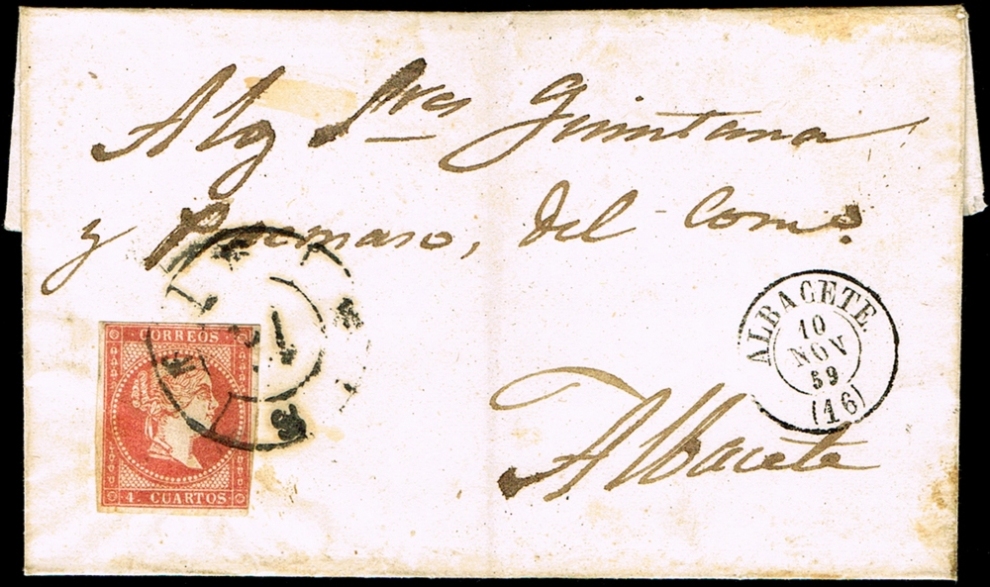 A los Sres Quintana
y Romaso, del Como.
CORREOS
4. CUARTOS
ALBACETE.
10
NOV
59
(16)
Albacete